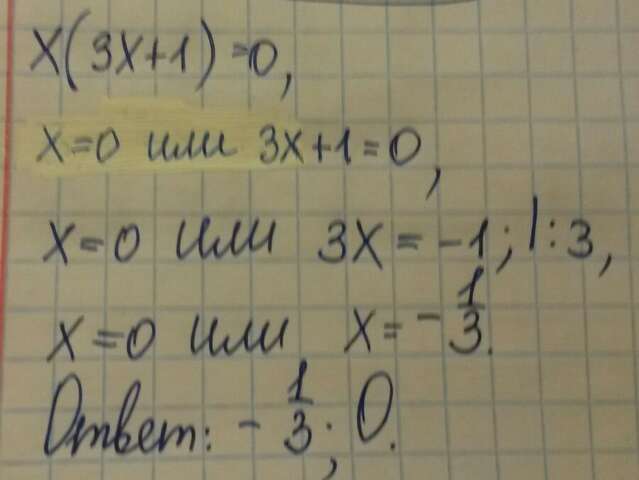 x(3x+1)=0,
x=0 или 3x+1=0,
x=0 или 3x=-1; |:3,
x=0 или x=-1/3.
Ответ: -1/3; 0.